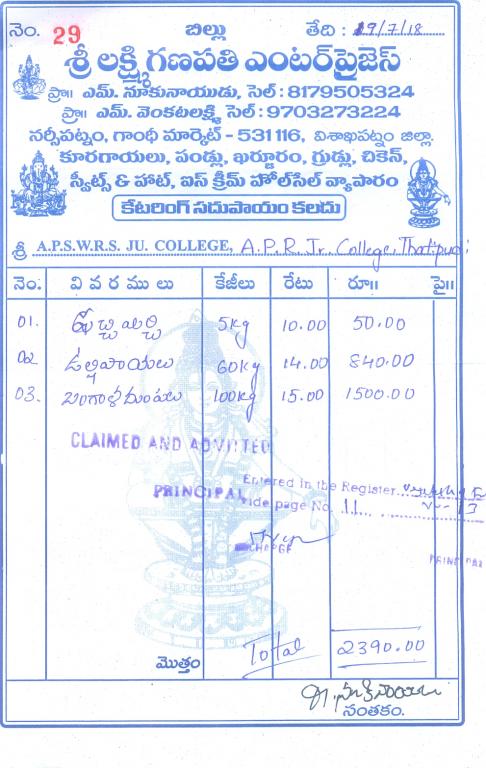 నెం. 29 బిల్లు తేది : 19/7/18
శ్రీ లక్ష్మి గణపతి ఎంటర్‌ప్రైజెస్
ప్రొ॥ ఎమ్. నూకునాయుడు, సెల్ : 8179505324
ప్రొ॥ ఎమ్. వెంకటలక్ష్మి, సెల్ : 9703273224
నర్సీపట్నం, గాంధీ మార్కెట్ - 531116, విశాఖపట్నం జిల్లా.
కూరగాయలు, పండ్లు, ఖర్జూరం, గ్రుడ్లు, చికెన్,
స్వీట్స్ & హాట్, ఐస్ క్రీమ్ హోల్‌సేల్ వ్యాపారం
కేటరింగ్ సదుపాయం కలదు
శ్రీ A.P.S.W.R.S. JU. COLLEGE, A.P.R. Jr. College, Thatipudi
నెం. వివరములు కేజీలు రేటు రూ॥ పై॥
01. 5kg 10.00 50.00
02 ఉల్లిపాయలు 60kg 14.00 840.00
03. బంగాళదుంపలు 100kg 15.00 1500.00
CLAIMED AND ADMITTED
Entered in the Register
PRINCIPAL
vide page No. 11
CHARGE
PRINCIPAL
మొత్తం Total 2390.00
సంతకం.